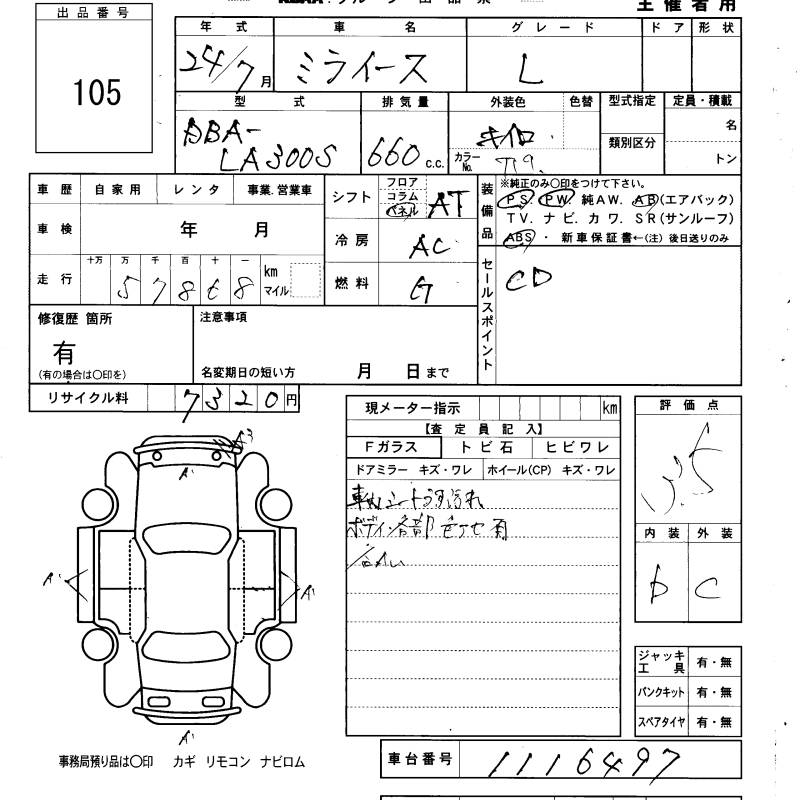 主催者用
出品番号
105
年式 車名 グレード ドア 形状
24/7月 ミライース L
型式 排気量 外装色 色替 型式指定 定員・積載
DBA-
LA300S 660 c.c. カラーNo. T19. 類別区分 名
トン
車歴 自家用 レンタ 事業.営業車
車検 年 月
走行 十万 万 千 百 十 一 km
マイル
5 7 8 6 8
シフト フロア コラム パネル AT
冷房 AC
燃料 G
装備品
※純正のみ〇印をつけて下さい。
PS. PW. 純AW. AB(エアバック)
TV. ナビ. カワ. SR(サンルーフ)
ABS ・ 新車保証書←(注) 後日送りのみ
セールスポイント
CD
修復歴 箇所
有
(有の場合は〇印を)
注意事項
名変期日の短い方 月 日まで
リサイクル料 7320円
現メーター指示 km
【査定員記入】
Fガラス トビ石 ヒビワレ
ドアミラー キズ・ワレ ホイール(CP) キズ・ワレ
車内シートうす汚れ
ボディ各部
評価点
3.5
内装 外装
D C
A3
A'
A'
A'
A'
ジャッキ
工具 有・無
パンクキット 有・無
スペアタイヤ 有・無
事務局預り品は〇印 カギ リモコン ナビロム
車台番号 1116497